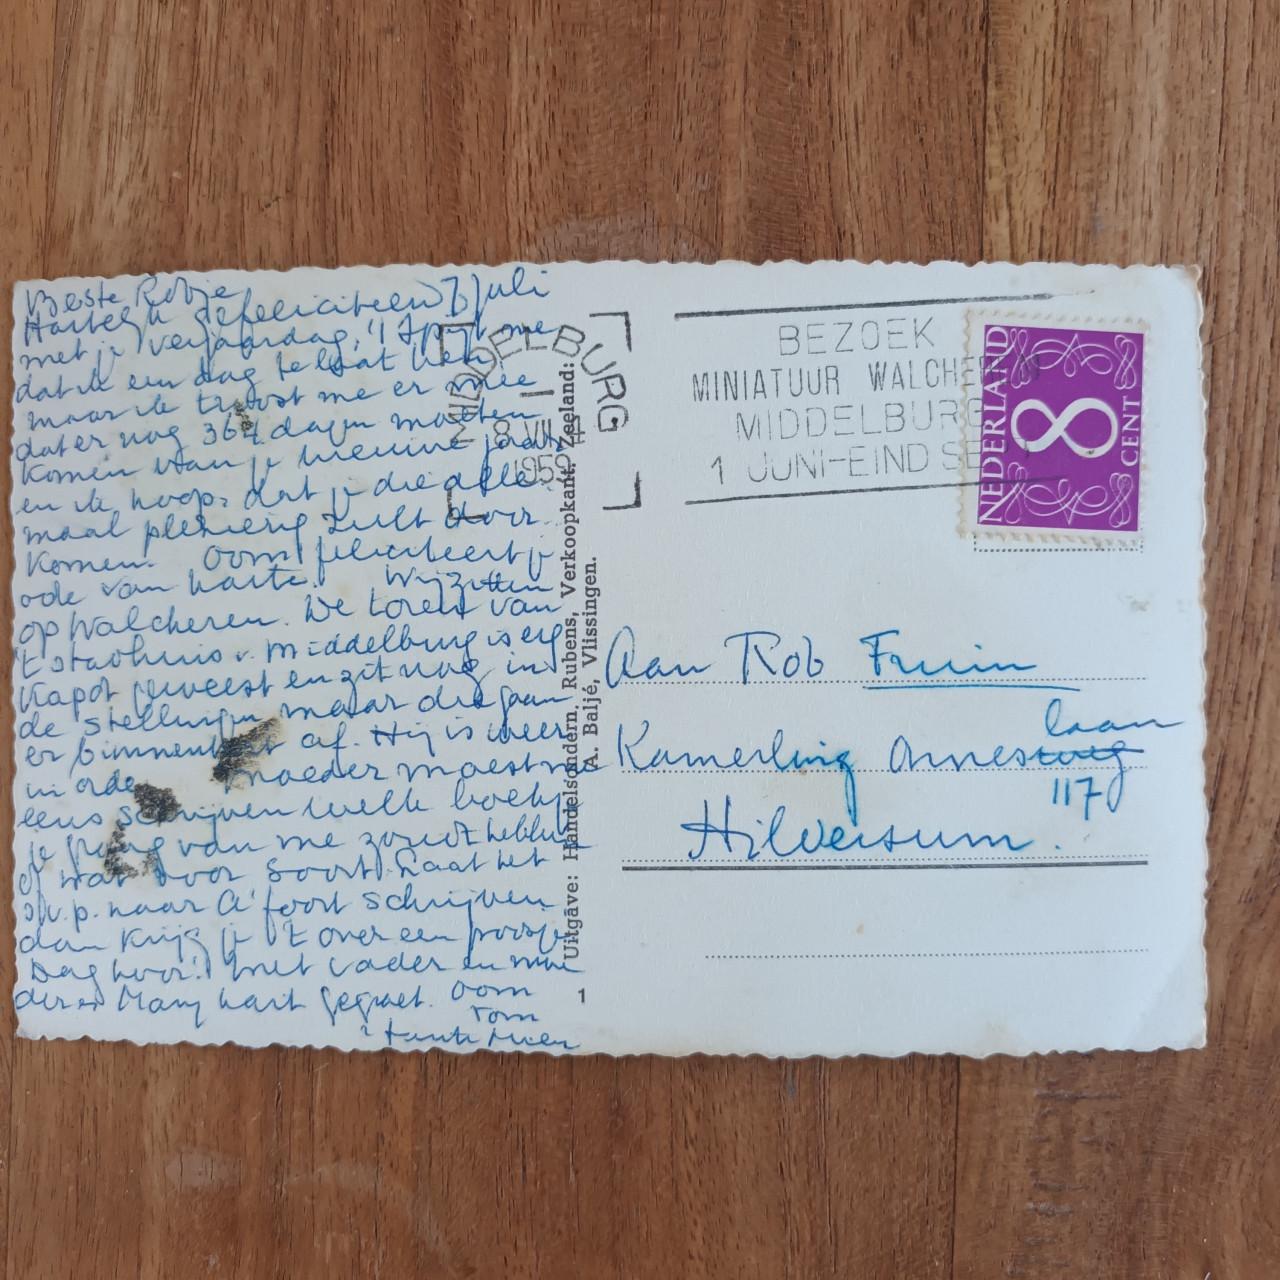 Beste Robje
7 Juli
Hartelijk gefeliciteerd
met je verjaardag, 't spijt me
dat ik een dag te laat ben
maar ik troost me er mee
dat er nog 364 dagen moeten
komen van je nieuwe jaar
en ik hoop dat je die alle-
maal plezierig zult door-
komen. Oom feliciteert je
ook van harte. Wij zitten
op Walcheren. De toren van
't stadhuis v. Middelburg is erg
kapot geweest en zit nog in
de stellingen maar die gaan
er binnenkort af. Hij is weer
in orde. Moeder moest me
eens schrijven welk boekje
je graag van me zoudt hebben
of wat voor soort. Laat het
s.v.p. naar A'foort schrijven
dan krijg je 't over een poosje
Dag hoor! met vader en moe
der en Many hart. gegroet. Oom
Tom
tante Mien
MIDDELBURG
8 VII
1959
BEZOEK
MINIATUUR WALCHEREN
MIDDELBURG
1 JUNI-EIND SEPT
NEDERLAND
8
CENT
Uitgave: Handelsondern. Rubens, Verkoopkant. Zeeland:
A. Baljé, Vlissingen.
1
Aan Rob Fruin
laan
Kamerling Onnes
117
Hilversum.